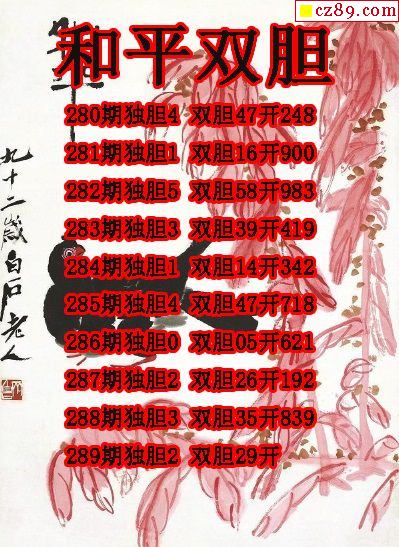 cz89.com
和平双胆
280期独胆4 双胆47开248
281期独胆1 双胆16开900
282期独胆5 双胆58开983
283期独胆3 双胆39开419
284期独胆1 双胆14开342
285期独胆4 双胆47开718
286期独胆0 双胆05开621
287期独胆2 双胆26开192
288期独胆3 双胆35开839
289期独胆2 双胆29开
九十二歲白石老人